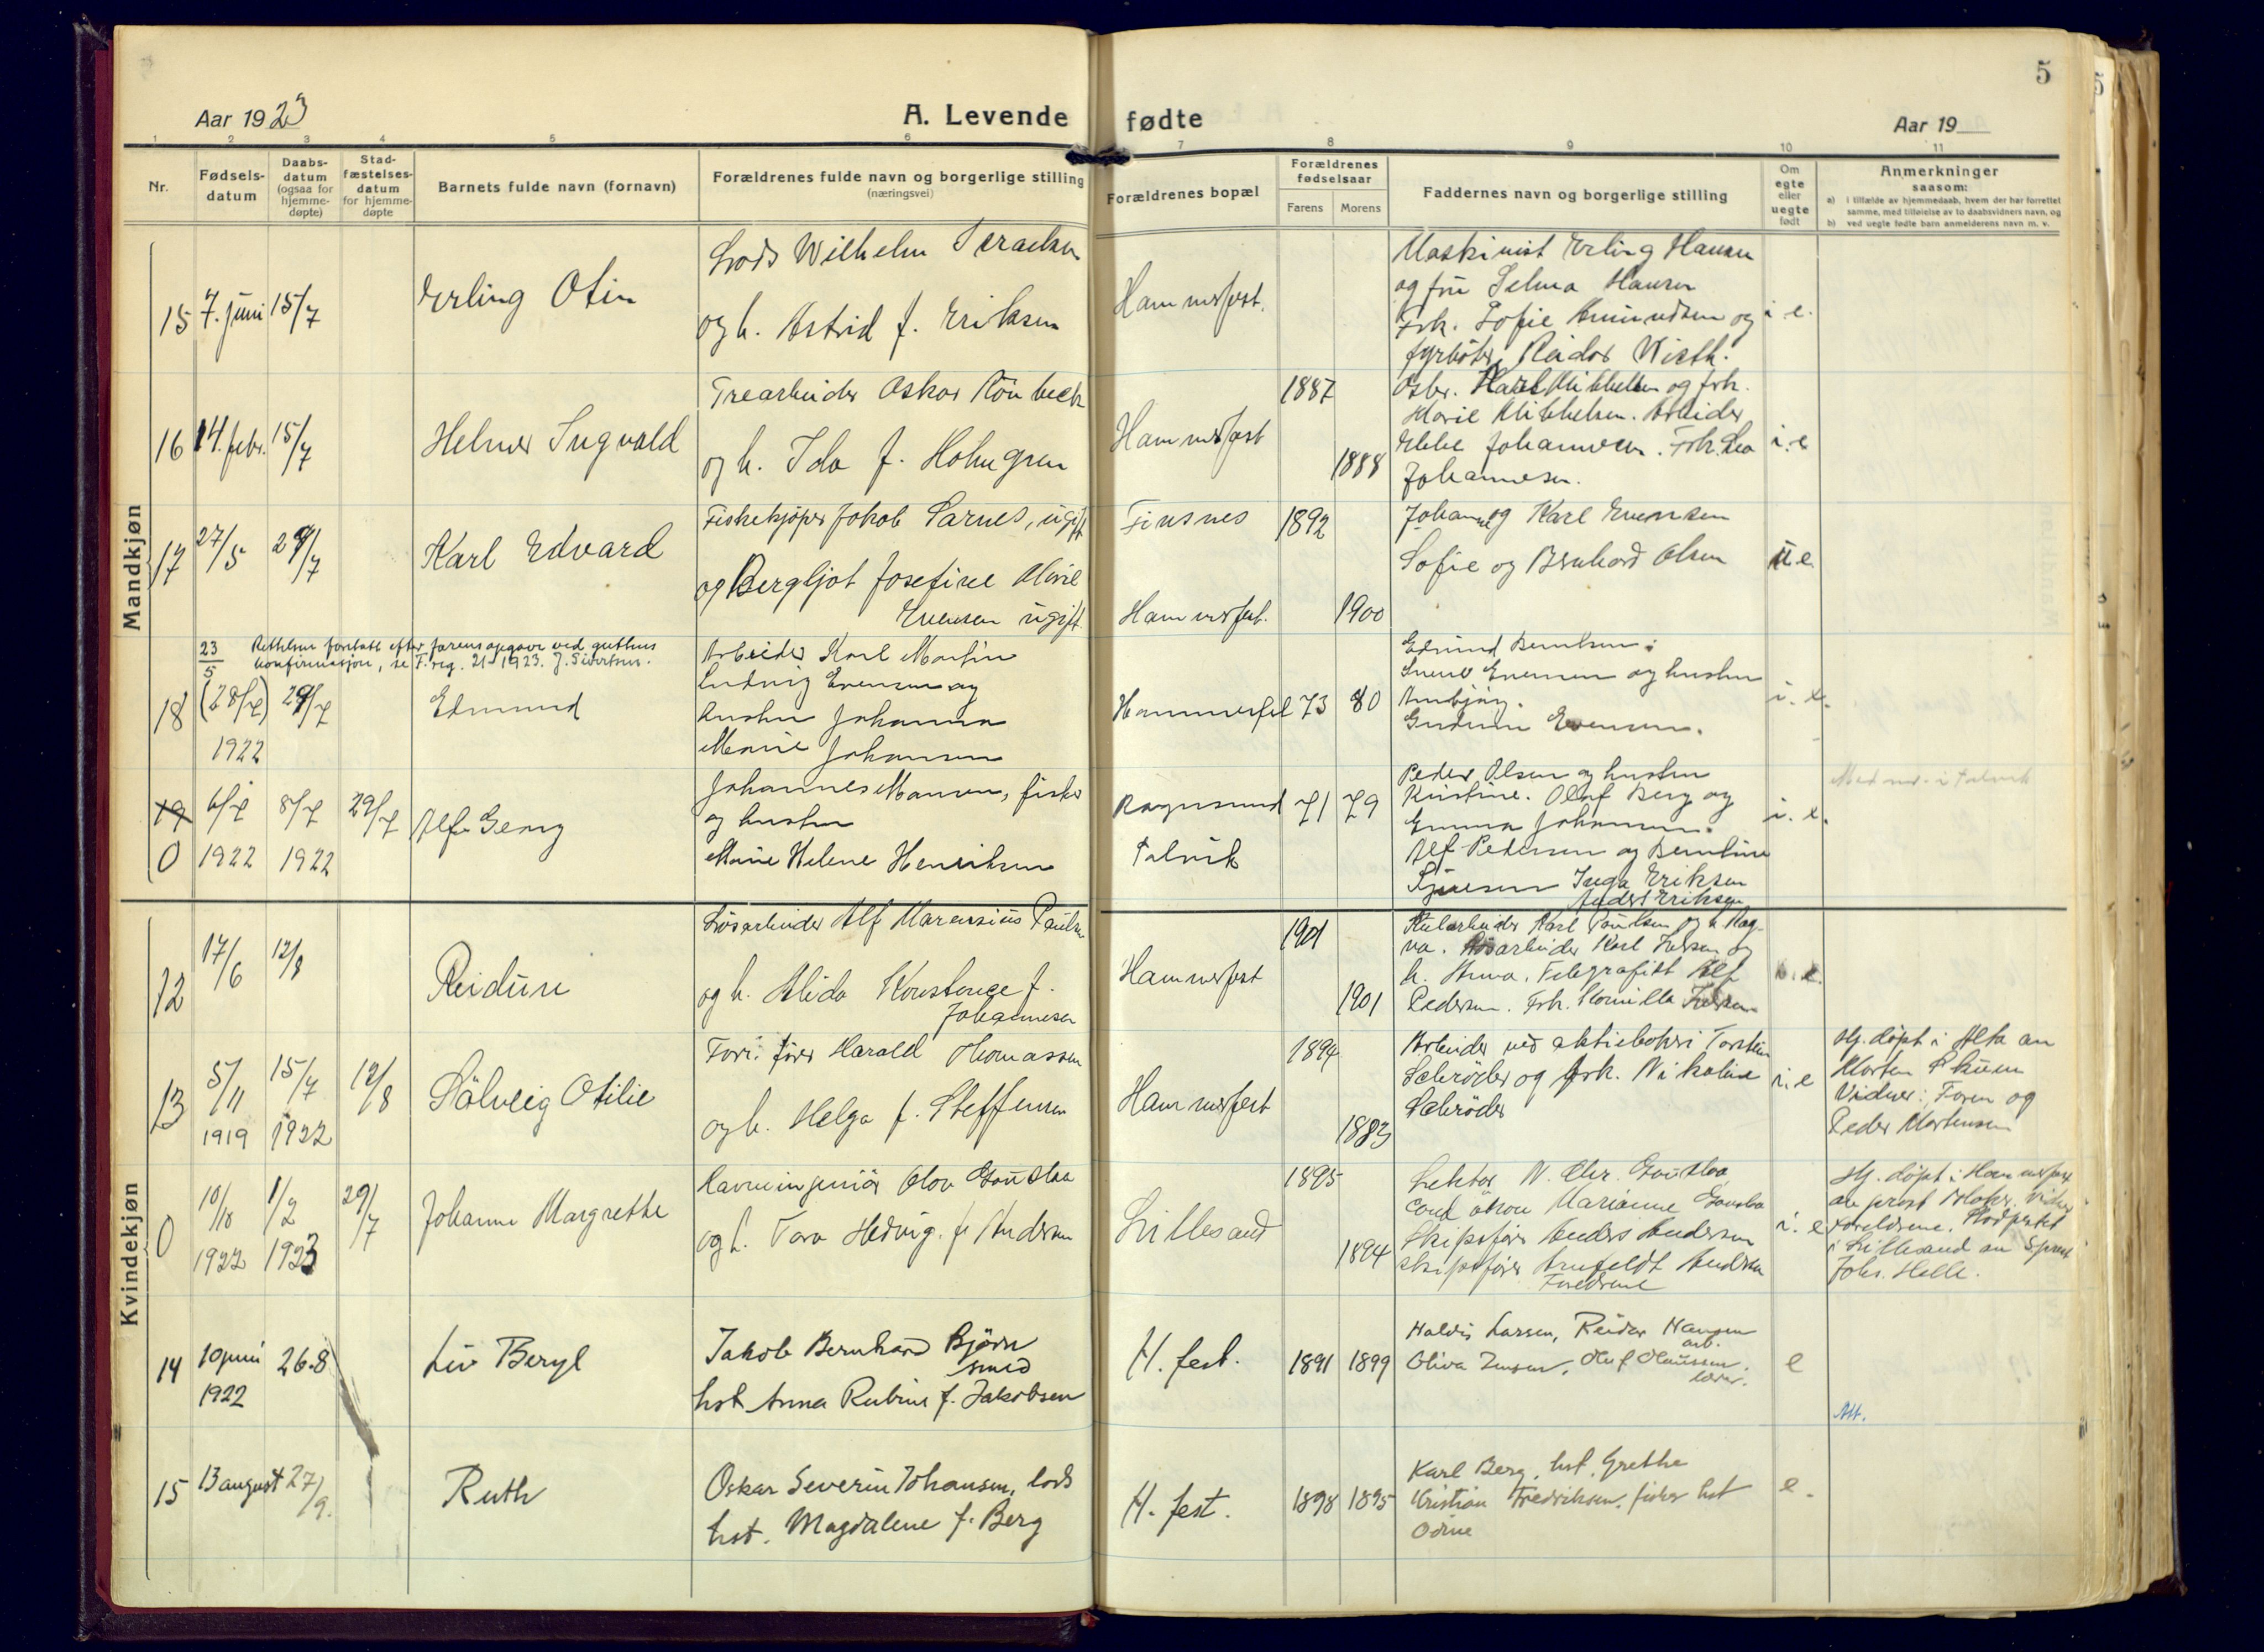 5
Aar 1923
A. Levende fødte
Aar 19
1 2 3 4 5 6 7 8 9 10 11
Nr.
Fødsels-
datum
Daabs-
datum
(ogsaa for
hjemme-
døpte)
Stad-
fæstelses-
datum
for hjemme-
døpte
Barnets fulde navn (fornavn)
Forældrenes fulde navn og borgerlige stilling
(næringsvei)
Forældrenes bopæl
Forældrenes
fødselsaar
Farens Morens
Faddernes navn og borgerlige stilling
Om
egte
eller
uegte
født
Anmerkninger
saasom:
a) i tilfælde av hjemmedaab, hvem der har forrettet
samme, med tilføielse av to daabsvidners navn, og
b) ved uegte fødte barn anmelderens navn m. v.
Mandkjøn
15 7. juni 15/7
Erling Otin
Lods Wilhelm
og h. Astrid f. Eriksen
Hammerfest.
Maskinist Erling Hansen
og fru Selma Hansen
Frk. Sofie Amundsen og
fyrbøter Reidar Wirth.
i e.
16 14. febr. 15/7
Helmer Ingvald
Trearbeider Oskar Rönbeck
og h. Ida f. Holmgren
Hammerfest
1887
1888
Karl Mikkelsen og frk.
Marie Mikkelsen. Arbeider
Johannesen. Frk. Lea
Johannesen.
i. e
17 27/5 29/7
Karl Edvard
Fiskekjøper Jakob Sarnes, ugift
og Bergljot Josefine Marie
Evensen ugift.
Finsnes 1892
Hammerfest. 1900
Johanne og Karl Evensen
Sofie og Bernhard Olsen
u. e.
23/5 Rettelsen foretatt efter farens opgave ved guttens
konfirmasjon, se F. reg. 21-1923. J. Sivertsen.
18 (28/7) 29/7
1922
Edmund
Arbeider Karl Martin
Ludvig Evensen og
hustru Johanna
Marie Johansen
Hammerfest 73 80
Edmund Berntsen:
Evensen og hustru
Gudrun Evensen.
i. e.
19 6/7 8/7 29/7
0 1922 1922
Alf Georg
Johannes Hansen, fisker
og hustru
Marie Helene Henriksen
Rognsund
Talvik
71 79
Peder Olsen og hustru
Kristine. Olaf Berg og
Emma Johansen.
Alf Pedersen og Berntine
Inga Eriksen
Anders Eriksen
i. e.
Med nr. i Talvik
Kvindekjøn
12 17/6 12/8
Reidun
Løsarbeider Alf Marensius Paulsen
og h. Alida Konstance f.
Johannesen
Hammerfest
1901
1901
Karl Paulsen og h. Rag-
na. Løsarbeider Karl Iversen og
h. Anna. Telegrafist Alf
Pedersen. Frk. Kornilla Iversen
i. e.
13 5/11 15/7 12/8
1919 1922
Sölveig Otilie
Harald Thomassen
og h. Helga f. Steffensen
Hammerfest
1894
1883
Arbeider ved aktiebokeri Torstein
Schrøder og frk. Nikoline
Schrøder
i. e
Hj. døpt i Alta av
Morten
Vidner: Faren og
Peder Mortensen
0 10/10 1/2 29/7
1922 1923
Johanne Margrethe
Havneingeniör Olov Gauslaa
og h. Tora Hedvig. f. Andersen
Lillesand
1895
1894
Lektor N. Chr. Gauslaa
Cand. økon Marianne Gauslaa
Skipsfører Anders Andersen
Skipsfører Arnfeldt Andersen
Foreldrene
i. e
Hj. døpt i Hammerfest
av prost Vidner
Foreldrene. Stadfestet
i Lillesand av Sprest
Johs. Helle.
14 10 juni 26.8
1922
Liv Beryl
Jakob Bernhard Bjørn
smed
hst Anna Rubine f. Jakobsen
H. fest.
1891 1899
Haldis Larsen, Reidar Hansen
arb.
Oliva Jensen, Oluf Olaussen.
lærer.
e
Att.
15 13 august 27/9.
Ruth
Oskar Severin Johansen, lods
hst. Magdalene f. Berg
H. fest.
1898 1895
Karl Berg, hst. Grethe
Kristian Fredriksen. fisker hst
Odine
e.